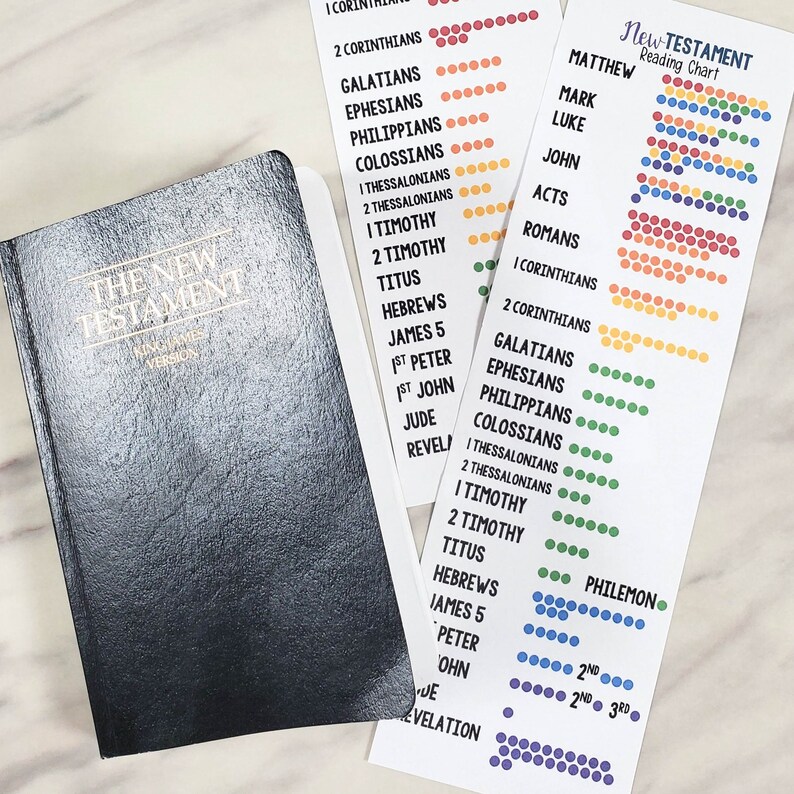 THE NEW
TESTAMENT
KING JAMES
VERSION
1 CORINTHIANS
2 CORINTHIANS
GALATIANS
EPHESIANS
PHILIPPIANS
COLOSSIANS
1 THESSALONIANS
2 THESSALONIANS
1 TIMOTHY
2 TIMOTHY
TITUS
HEBREWS
JAMES 5
1ST PETER
1ST JOHN
JUDE
REVELA
New TESTAMENT
Reading Chart
MATTHEW
MARK
LUKE
JOHN
ACTS
ROMANS
1 CORINTHIANS
2 CORINTHIANS
GALATIANS
EPHESIANS
PHILIPPIANS
COLOSSIANS
1 THESSALONIANS
2 THESSALONIANS
1 TIMOTHY
2 TIMOTHY
TITUS
PHILEMON
HEBREWS
JAMES 5
PETER 2ND
JOHN 2ND 3RD
UDE
REVELATION